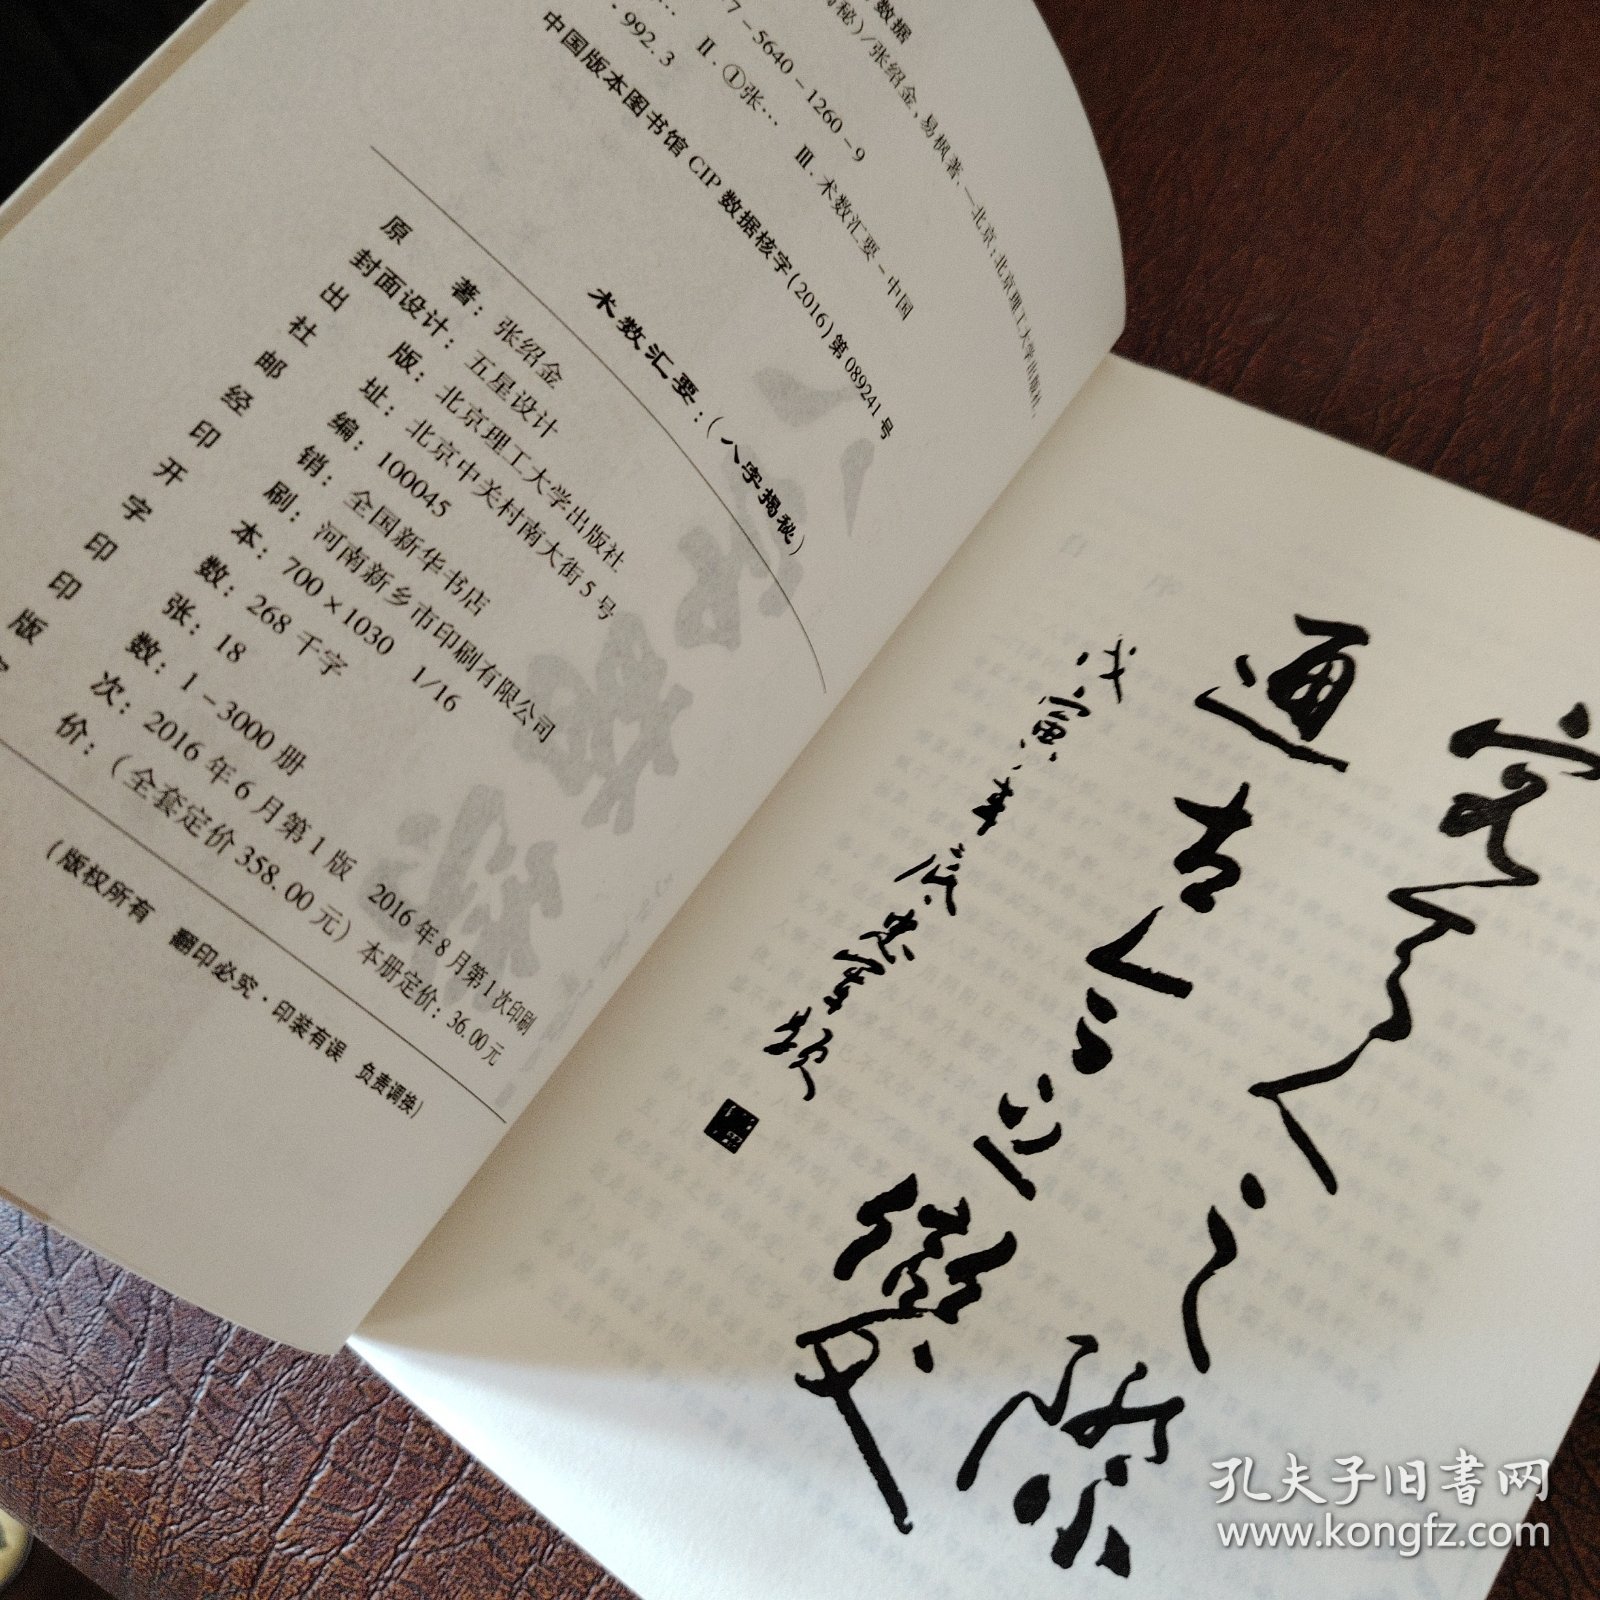 数据
秘)/张绍金,易枫著.—北京:北京理工大学出版社,
7-5640-1260-9
Ⅱ.①张… Ⅲ.术数汇要-中国
.992.3
中国版本图书馆CIP数据核字(2016)第089241号
术数汇要:(八字揭秘)
原 著:张绍金
封面设计:五星设计
出 版:北京理工大学出版社
社 址:北京中关村南大街5号
邮 编:100045
经 销:全国新华书店
印 刷:河南新乡市印刷有限公司
开 本:700×1030 1/16
字 数:268千字
印 张:18
印 数:1-3000册
版 次:2016年6月第1版 2016年8月第1次印刷
价:(全套定价358.00元)本册定价:36.00元
(版权所有 翻印必究·印装有误 负责调换)
究天人之际
通古今之变
戊寅年
孔夫子旧书网
www.kongfz.com